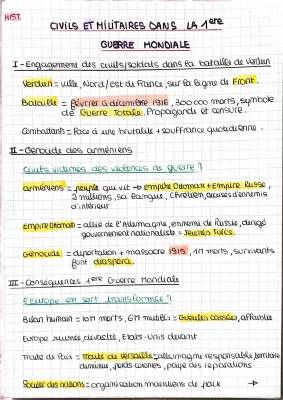 HIST
CIVILS ET MILITAIRES DANS LA 1ere
GUERRE MONDIALE
I - Engagement des civils/soldats dans la bataille de Verdun
Verdun = ville, Nord/Est de France, sur la ligne de Front.
Bataille = février à décembre 1916, 300 000 morts, symbole
de Guerre Totale. Propagande et censure.
Combattants = Face à une brutalité + souffrance quotidienne.
II - Génocide des arméniens
Civils victimes des violences de guerre ?
arméniens = peuple qui vit → empire Ottoman + Empire Russe,
2 millions, sa langue, Chrétien, accusés d'ennemis
d'intérieur
Empire Ottoman = allié de l'Allemagne, ennemi de Russie, dirigé
gouvernement nationaliste = Jeunes Turcs.
Génocide = déportation + massacre 1915, 1M morts, survivants
font diaspora.
III - Conséquences 1ere Guerre Mondiale
l'Europe en sort transformée ?
Bilan humain = 10M morts, 6M mutilés = Gueules cassées, affaiblie
Europe ruinée, Etats-Unis devant
Traité de Paix = Traité de Versailles = allemagne responsable, territoire
diminue, perds colonies, paye des réparations
Société des nations = organisation maintiens de paix →